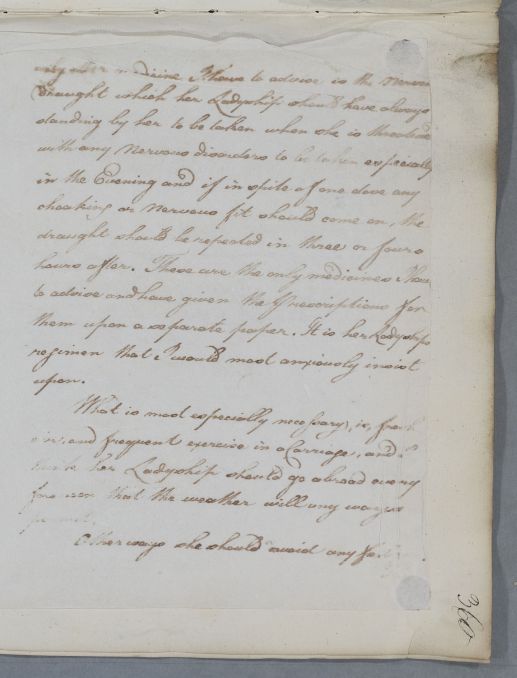 only other medicine I have to advise is the Nervou
Draught which her Ladyship should have always
standing by her to be taken when she is threatned
with any Nervous disorders to be taken especially
in the Evening and if in spite of one dose any
choaking or Nervous fit should come on, the
draught should be repeated in three or four
hours after. These are the only medicines I have
to advise and have given the Prescriptions for
them upon a separate paper. It is her Ladyships
regimen that I would most anxiously insist
upon.
What is most especially necessary, is, fresh
air, and frequent exercise in a Carriage, and I
think her Ladyship should go abroad every
forenoon that the weather will any ways
permit.
Otherways she should avoid any
360